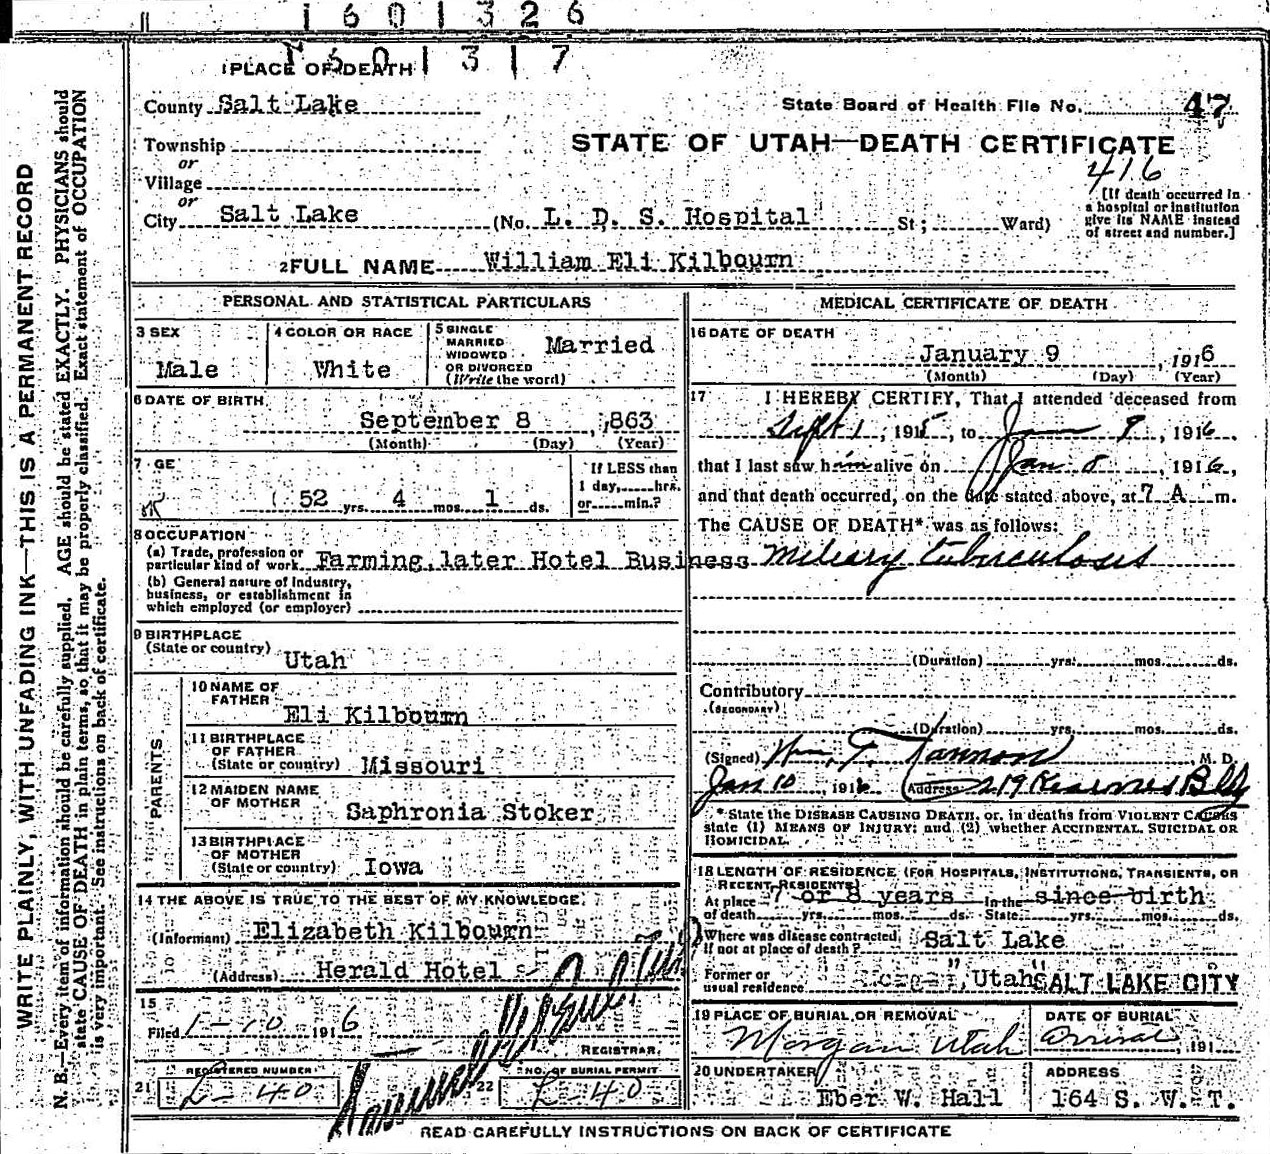 1601326
1601317
1 PLACE OF DEATH
County Salt Lake
State Board of Health File No. 47
Township
or
Village
or
City Salt Lake (No. L. D. S. Hospital St; Ward)
STATE OF UTAH—DEATH CERTIFICATE
416
[If death occurred in
a hospital or institution
give its NAME instead
of street and number.]
2 FULL NAME William Eli Kilbourn
PERSONAL AND STATISTICAL PARTICULARS
3 SEX
Male
4 COLOR OR RACE
White
5 SINGLE
MARRIED
WIDOWED
OR DIVORCED
(Write the word)
Married
6 DATE OF BIRTH
September 8 , 863
(Month) (Day) (Year)
7 GE
52 yrs. 4 mos. 1 ds.
If LESS than
1 day, hrs.
or min.?
8 OCCUPATION
(a) Trade, profession or
particular kind of work Farming, later Hotel Business
(b) General nature of Industry,
business, or establishment in
which employed (or employer)
9 BIRTHPLACE
(State or country) Utah
PARENTS
10 NAME OF
FATHER
Eli Kilbourn
11 BIRTHPLACE
OF FATHER
(State or country) Missouri
12 MAIDEN NAME
OF MOTHER
Saphronia Stoker
13 BIRTHPLACE
OF MOTHER
(State or country) Iowa
14 THE ABOVE IS TRUE TO THE BEST OF MY KNOWLEDGE
(Informant) Elizabeth Kilbourn
(Address) Herald Hotel
15
Filed 1-10 1916
REGISTRAR.
REGISTERED NUMBER
21 L-40
NO. OF BURIAL PERMIT
22 L-40
MEDICAL CERTIFICATE OF DEATH
16 DATE OF DEATH
January 9 , 1916
(Month) (Day) (Year)
17 I HEREBY CERTIFY, That I attended deceased from
Sept 1 , 1915, to Jan 9 , 1916,
that I last saw him alive on Jan 8 , 1916,
and that death occurred, on the date stated above, at 7 A m.
The CAUSE OF DEATH* was as follows:
Mileary tuberculosis
(Duration) yrs. mos. ds.
Contributory
(SECONDARY)
(Duration) yrs. mos. ds.
(Signed) Wm. T. Cannon M. D.
Jan 10 , 1916 (Address) 219 Kearnes Bldg
*State the DISEASE CAUSING DEATH, or, in deaths from VIOLENT CAUSES
state (1) MEANS OF INJURY; and (2) whether ACCIDENTAL, SUICIDAL OR
HOMICIDAL.
18 LENGTH OF RESIDENCE (FOR HOSPITALS, INSTITUTIONS, TRANSIENTS, OR
RECENT RESIDENTS)
At place 7 or 8 years In the since birth
of death yrs. mos. ds. State yrs. mos. ds.
Where was disease contracted,
if not at place of death? Salt Lake
Former or
usual residence " " , Utah SALT LAKE CITY
19 PLACE OF BURIAL OR REMOVAL
Morgan Utah
DATE OF BURIAL
Arrival , 191
20 UNDERTAKER
Eber W. Hall
ADDRESS
164 S. W. T.
READ CAREFULLY INSTRUCTIONS ON BACK OF CERTIFICATE
WRITE PLAINLY, WITH UNFADING INK—THIS IS A PERMANENT RECORD
N. B.—Every item of information should be carefully supplied. AGE should be stated EXACTLY. PHYSICIANS should
state CAUSE OF DEATH in plain terms, so that it may be properly classified. Exact statement of OCCUPATION
is very important. See instructions on back of certificate.